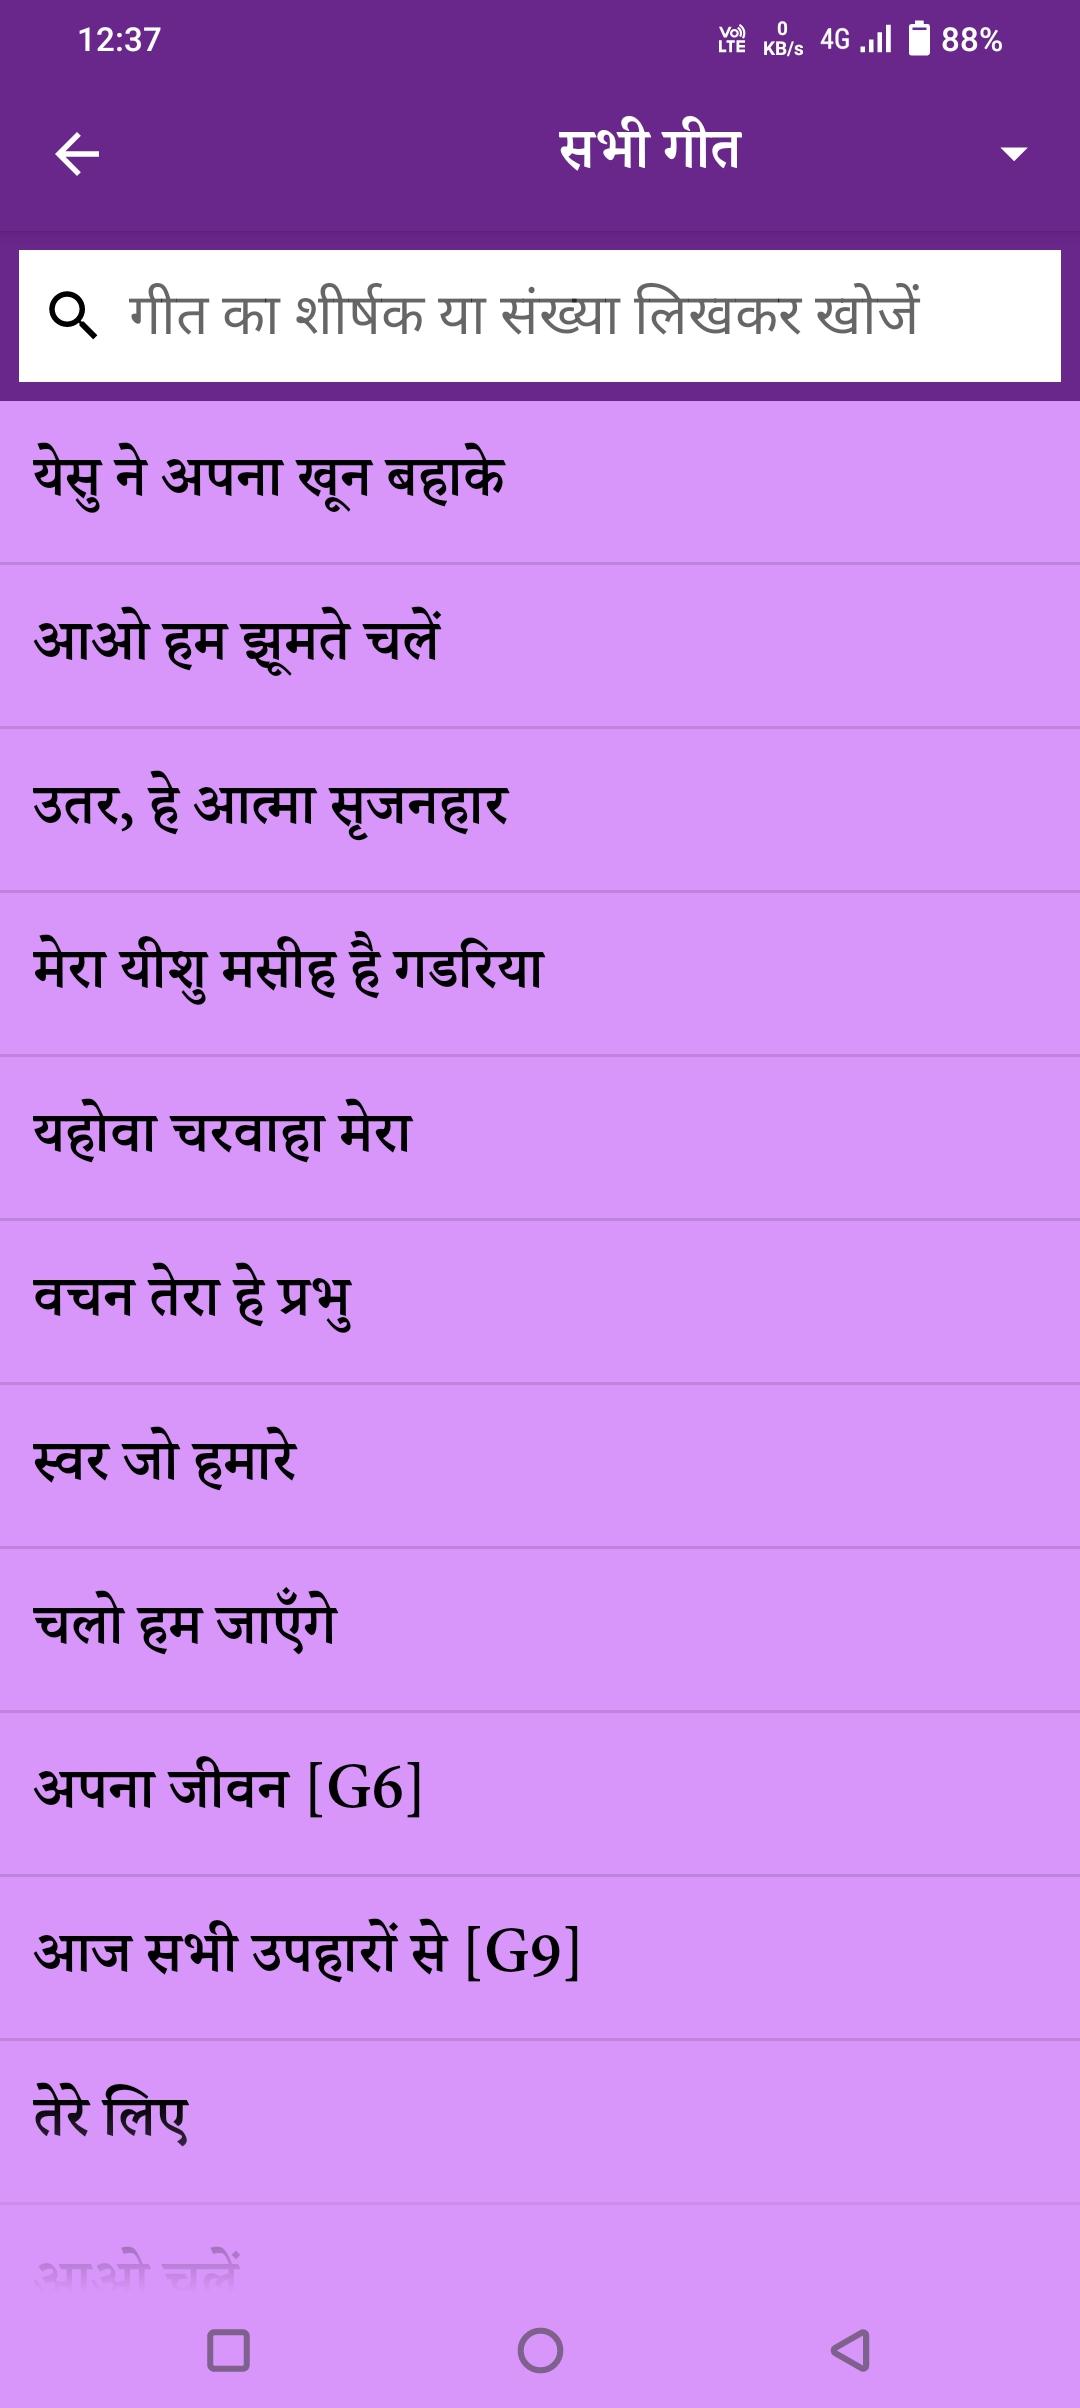 12:37 Vo)) LTE 0 KB/s 4G 88%
सभी गीत
गीत का शीर्षक या संख्या लिखकर खोजें
येसु ने अपना खून बहाके
आओ हम झूमते चलें
उतर, हे आत्मा सृजनहार
मेरा यीशु मसीह है गडरिया
यहोवा चरवाहा मेरा
वचन तेरा हे प्रभु
स्वर जो हमारे
चलो हम जाएँगे
अपना जीवन [G6]
आज सभी उपहारों से [G9]
तेरे लिए
आओ चलें